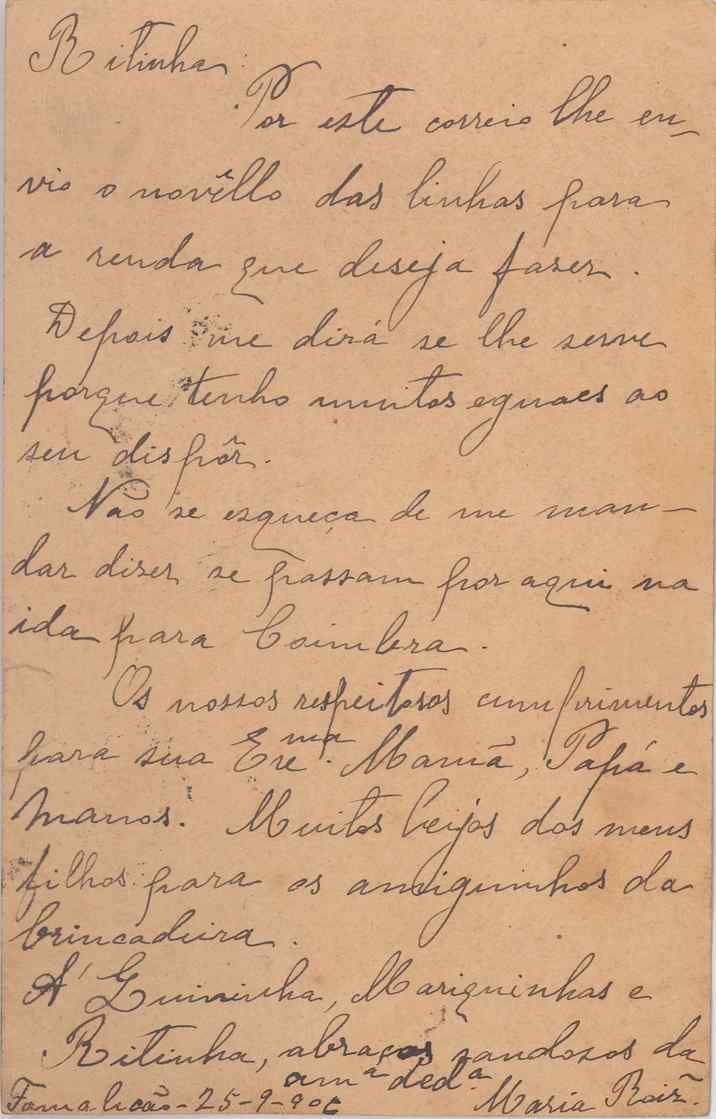 Ritinha:
Por este correio lhe en-
vio o novêllo das linhas para
a renda que deseja fazer.
Depois me dirá se lhe serve
porque tenho muitos eguaes ao
seu dispôr.
Não se esqueça de me man-
dar dizer se passam por aqui na
ida para Coimbra.
Os nossos respeitosos cumprimentos
para sua Exe.ma Mamã, Papá e
manos. Muitos beijos dos meus
filhos para os amiguinhos da
brincadeira.
Á Zuininha, Mariquinhas e
Ritinha, abraços saudosos da
am.ª ded.ª
Famalicão-25-9-
Maria